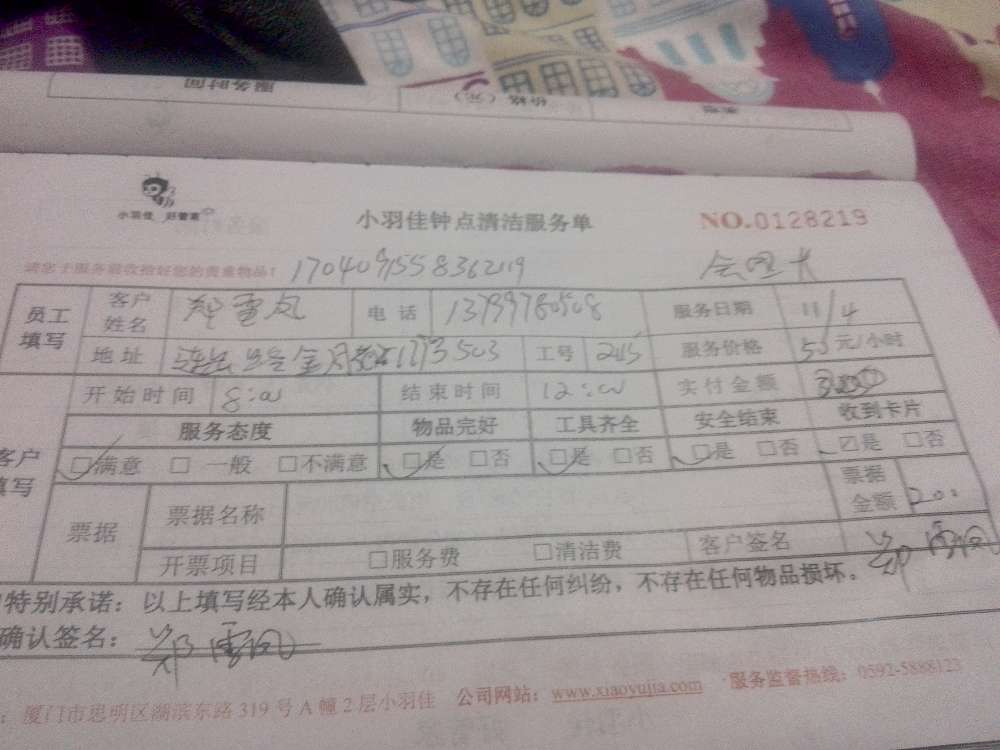 服务时间 价格（元）
小羽佳 好管家
小羽佳钟点清洁服务单 NO.0128219
请您于服务前收拾好您的贵重物品！ 170409155836219
员工填写 客户姓名 郑雪凤 电话 13799760508 服务日期 11/4
地址 503 工号 服务价格 50元/小时
客户填写 开始时间 8:00 结束时间 12:00 实付金额
服务态度 物品完好 工具齐全 安全结束 收到卡片
□满意 □一般 □不满意 □是 □否 □是 □否 □是 □否 ☑是 □否
票据 票据名称 票据金额 200
开票项目 □服务费 □清洁费 客户签名 郑雪凤
特别承诺：以上填写经本人确认属实，不存在任何纠纷，不存在任何物品损坏。
确认签名：郑雪凤
：厦门市思明区湖滨东路319号A幢2层小羽佳 公司网站：www.xiaoyujia.com 服务监督热线：0592-5888123